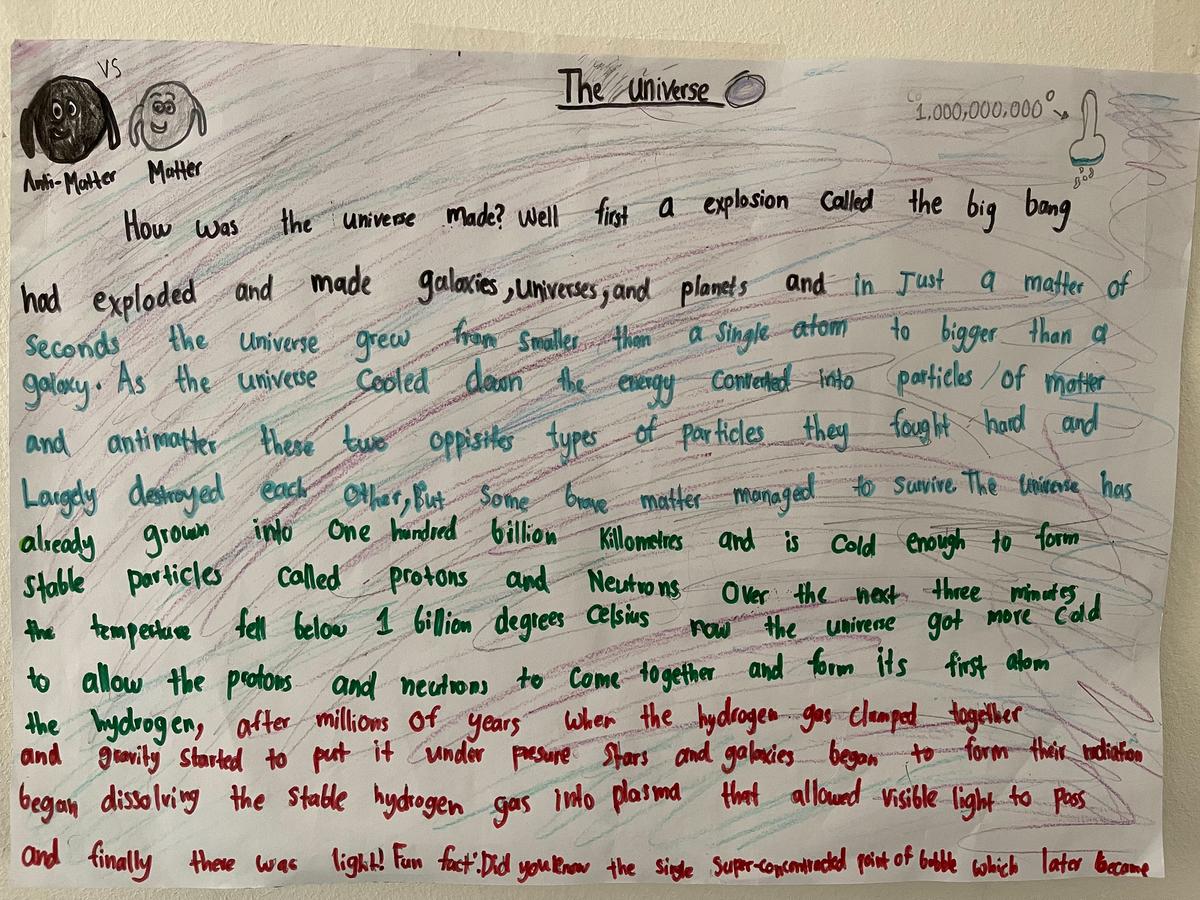 VS
The universe
Co 1,000,000,000°
Anti-Matter Matter
How was the universe made? Well first a explosion called the big bang
had exploded and made galaxies, universes, and planets and in Just a matter of
seconds the universe grew from smaller than a single atom to bigger than a
galaxy. As the universe cooled down the energy converted into particles of matter
and antimatter these two oppisites types of particles they fought hard and
Largely destroyed each other, But some brave matter managed to survive. The universe has
already grown into one hundred billion Killometres and is cold enough to form
stable particles called protons and Neutrons. Over the next three minutes
the temperture fell below 1 billion degrees Celsius now the universe got more cold
to allow the protons and neutrons to come together and form its first atom
the hydrogen, after millions of years when the hydrogen gas clamped together
and gravity started to put it under presure stars and galaxies began to form their radiation
began dissolving the stable hydrogen gas into plasma that allowed visible light to pass
and finally there was light! Fun fact: Did you know the single super-concentrated point of bubble which later became